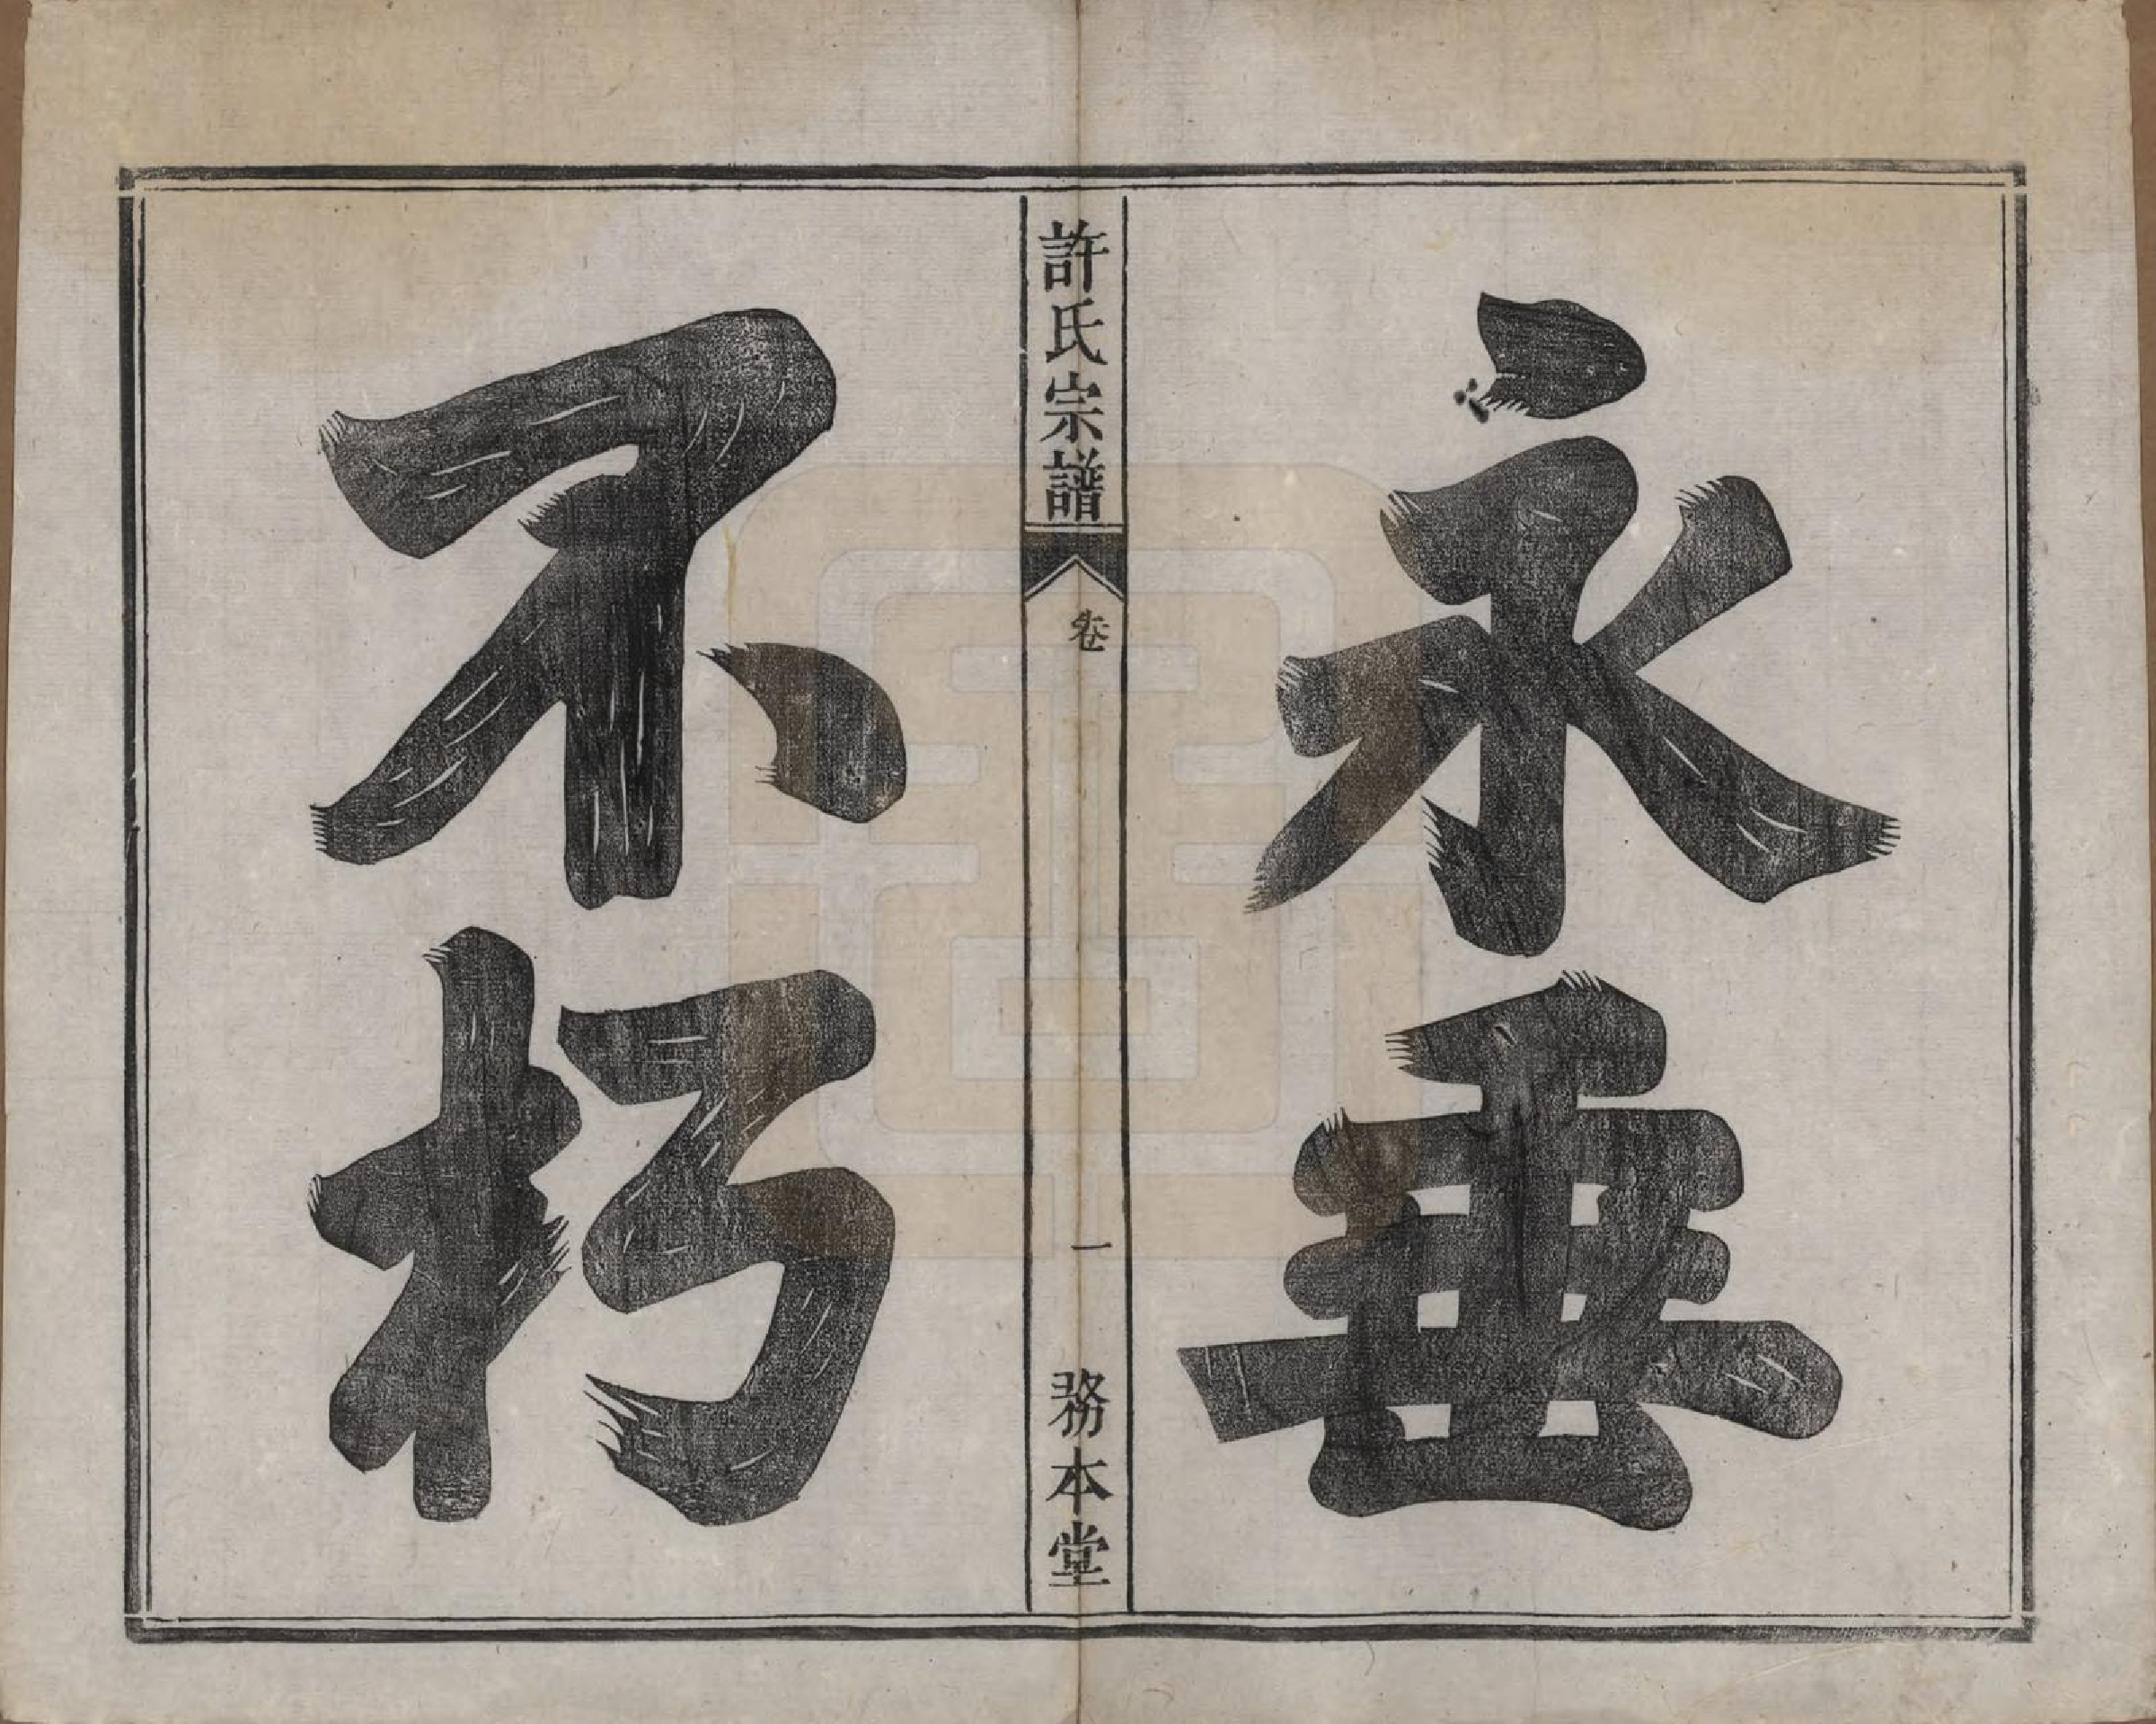 永垂
許氏宗譜
卷
一
務本堂
不朽